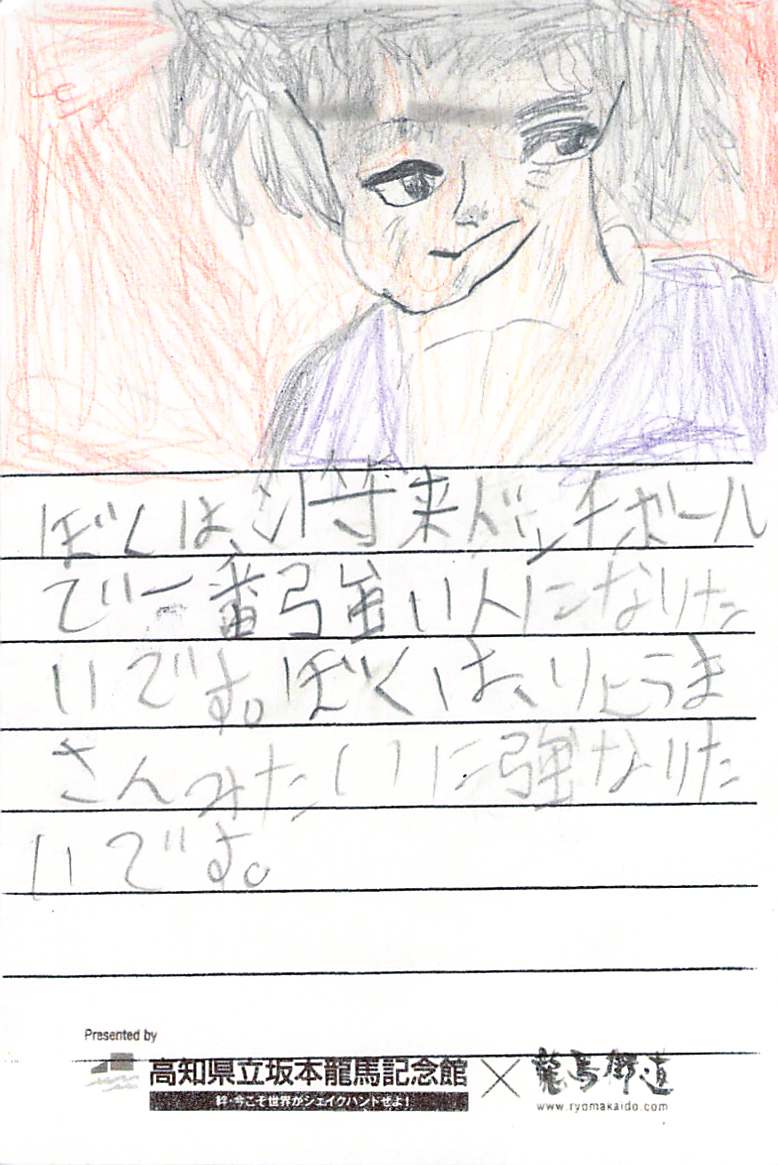 ぼくは、将来ドッチボール
で一番強い人になりた
いです。ぼくは、りょうま
さんみたいに強なりた
いです。
Presented by
高知県立坂本龍馬記念館×龍馬街道
絆・今こそ世界がシェイクハンドぜよ!
www.ryomakaido.com